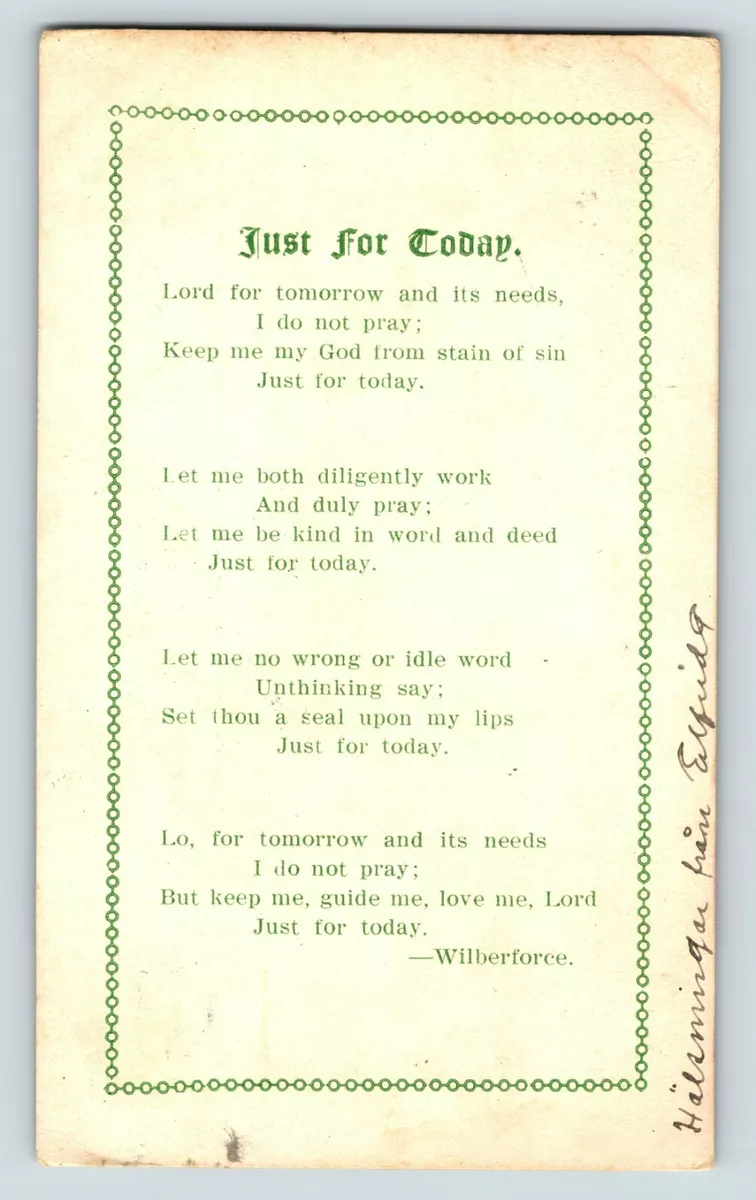 Just For Today.
Lord for tomorrow and its needs,
I do not pray;
Keep me my God from stain of sin
Just for today.
Let me both diligently work
And duly pray;
Let me be kind in word and deed
Just for today.
Let me no wrong or idle word
Unthinking say;
Set thou a seal upon my lips
Just for today.
Lo, for tomorrow and its needs
I do not pray;
But keep me, guide me, love me, Lord
Just for today.
—Wilberforce.
Hälsningar från